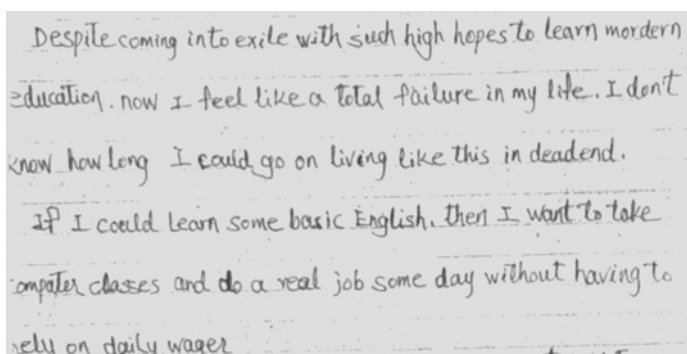 Despite coming into exile with such high hopes to learn mordern
education. now I feel like a total failure in my life. I don't
know how long I could go on living like this in deadend.
If I could learn some basic English. then I want to take
computer classes and do a real job some day without having to
rely on daily wager